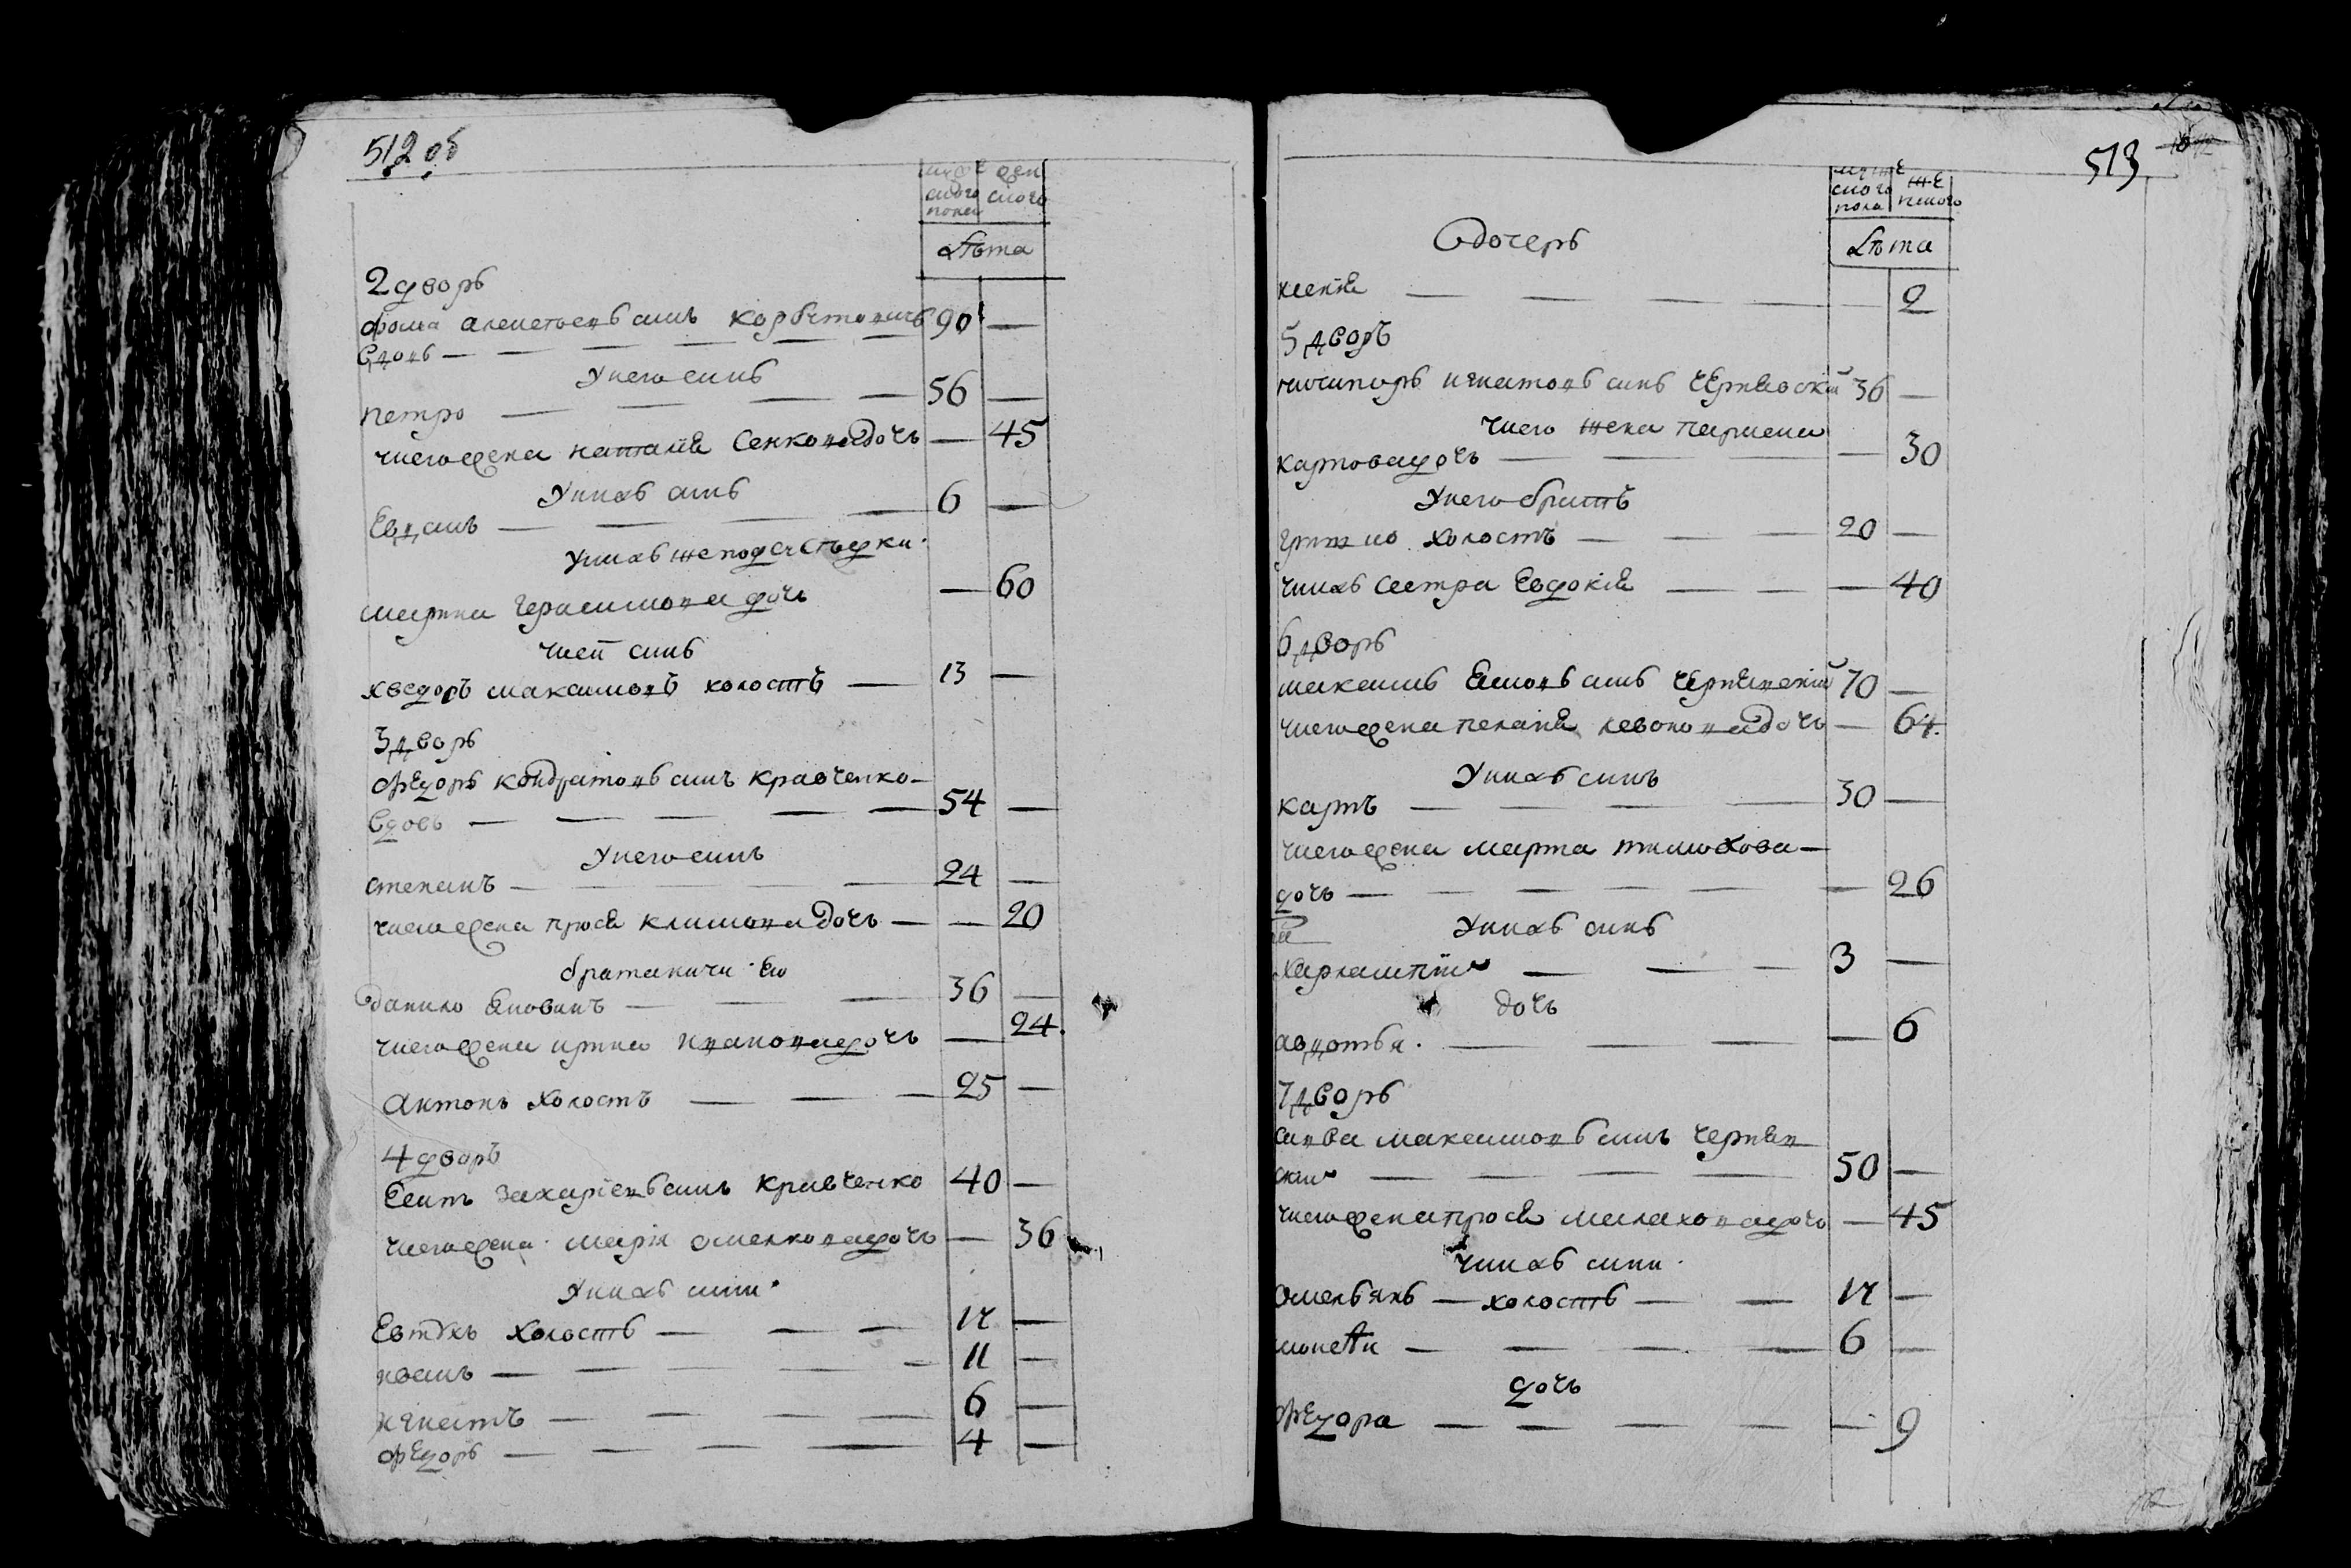 512 об
муже
ского
пола
жен
ского
Лѣта
2 дворъ
фома алексѣевъ синъ 90 —
вдовъ — — — — —
У него синъ
петро — — — — 56 —
у него жена наталія Сенковадочь — 45
У нихъ синъ
Евдамъ — — — — 6 —
У нихъ же подсусѣдки
марина Герасимова дочь — 60
у ней синъ
хведоръ максимовъ холостъ — 13 —
3 дворъ
фєдоръ кондратовъ синъ кравченко —
вдовъ — — — — — 54 —
У него синъ
степанъ — — — — 24 —
у него жена прося климовадочь — — 20
братаничи его
данило — — — 36 —
у него жена ирина ивановадочь — 24.
антонъ холостъ — — — 25 —
4 дворъ
Есипъ захаріевъ синъ кравченко 40 —
у него жена марія омелковадочь — 36
У нихъ сини
Евтухъ холостъ — — — 14 —
иванъ — — — — — 11 —
игнатъ — — — — 6 —
фєдоръ — — — — 4 —
513
муже
ского
пола
же
нского
Лѣта
дочеръ
ксенія — — — — — 2
5 дворъ
ничипоръ игнатовъ синъ чернявскій 36 —
у него жена
карповадочь — — — 30
У него братъ
грицко холостъ — — — 20 —
у нихъ сестра Евдокія — — — 40
6 дворъ
максимъ синъ чернявскій 70 —
у него жена пелагія левковадочь — 64.
У нихъ синъ
карпъ — — — — 30 —
у него жена марта тимохова —
дочь — — — — — — 26
У нихъ синъ
харлампій — — — 3 —
дочь
авдотья. — — — — 6
7 дворъ
савва максимовъ синъ черняв
скій — — — — 50 —
у него жена прося малаховадочь — 45
У нихъ сини
Омельянъ — холостъ — — 14 —
мокей — — — — 6 —
дочь
фєдора — — — — — 9